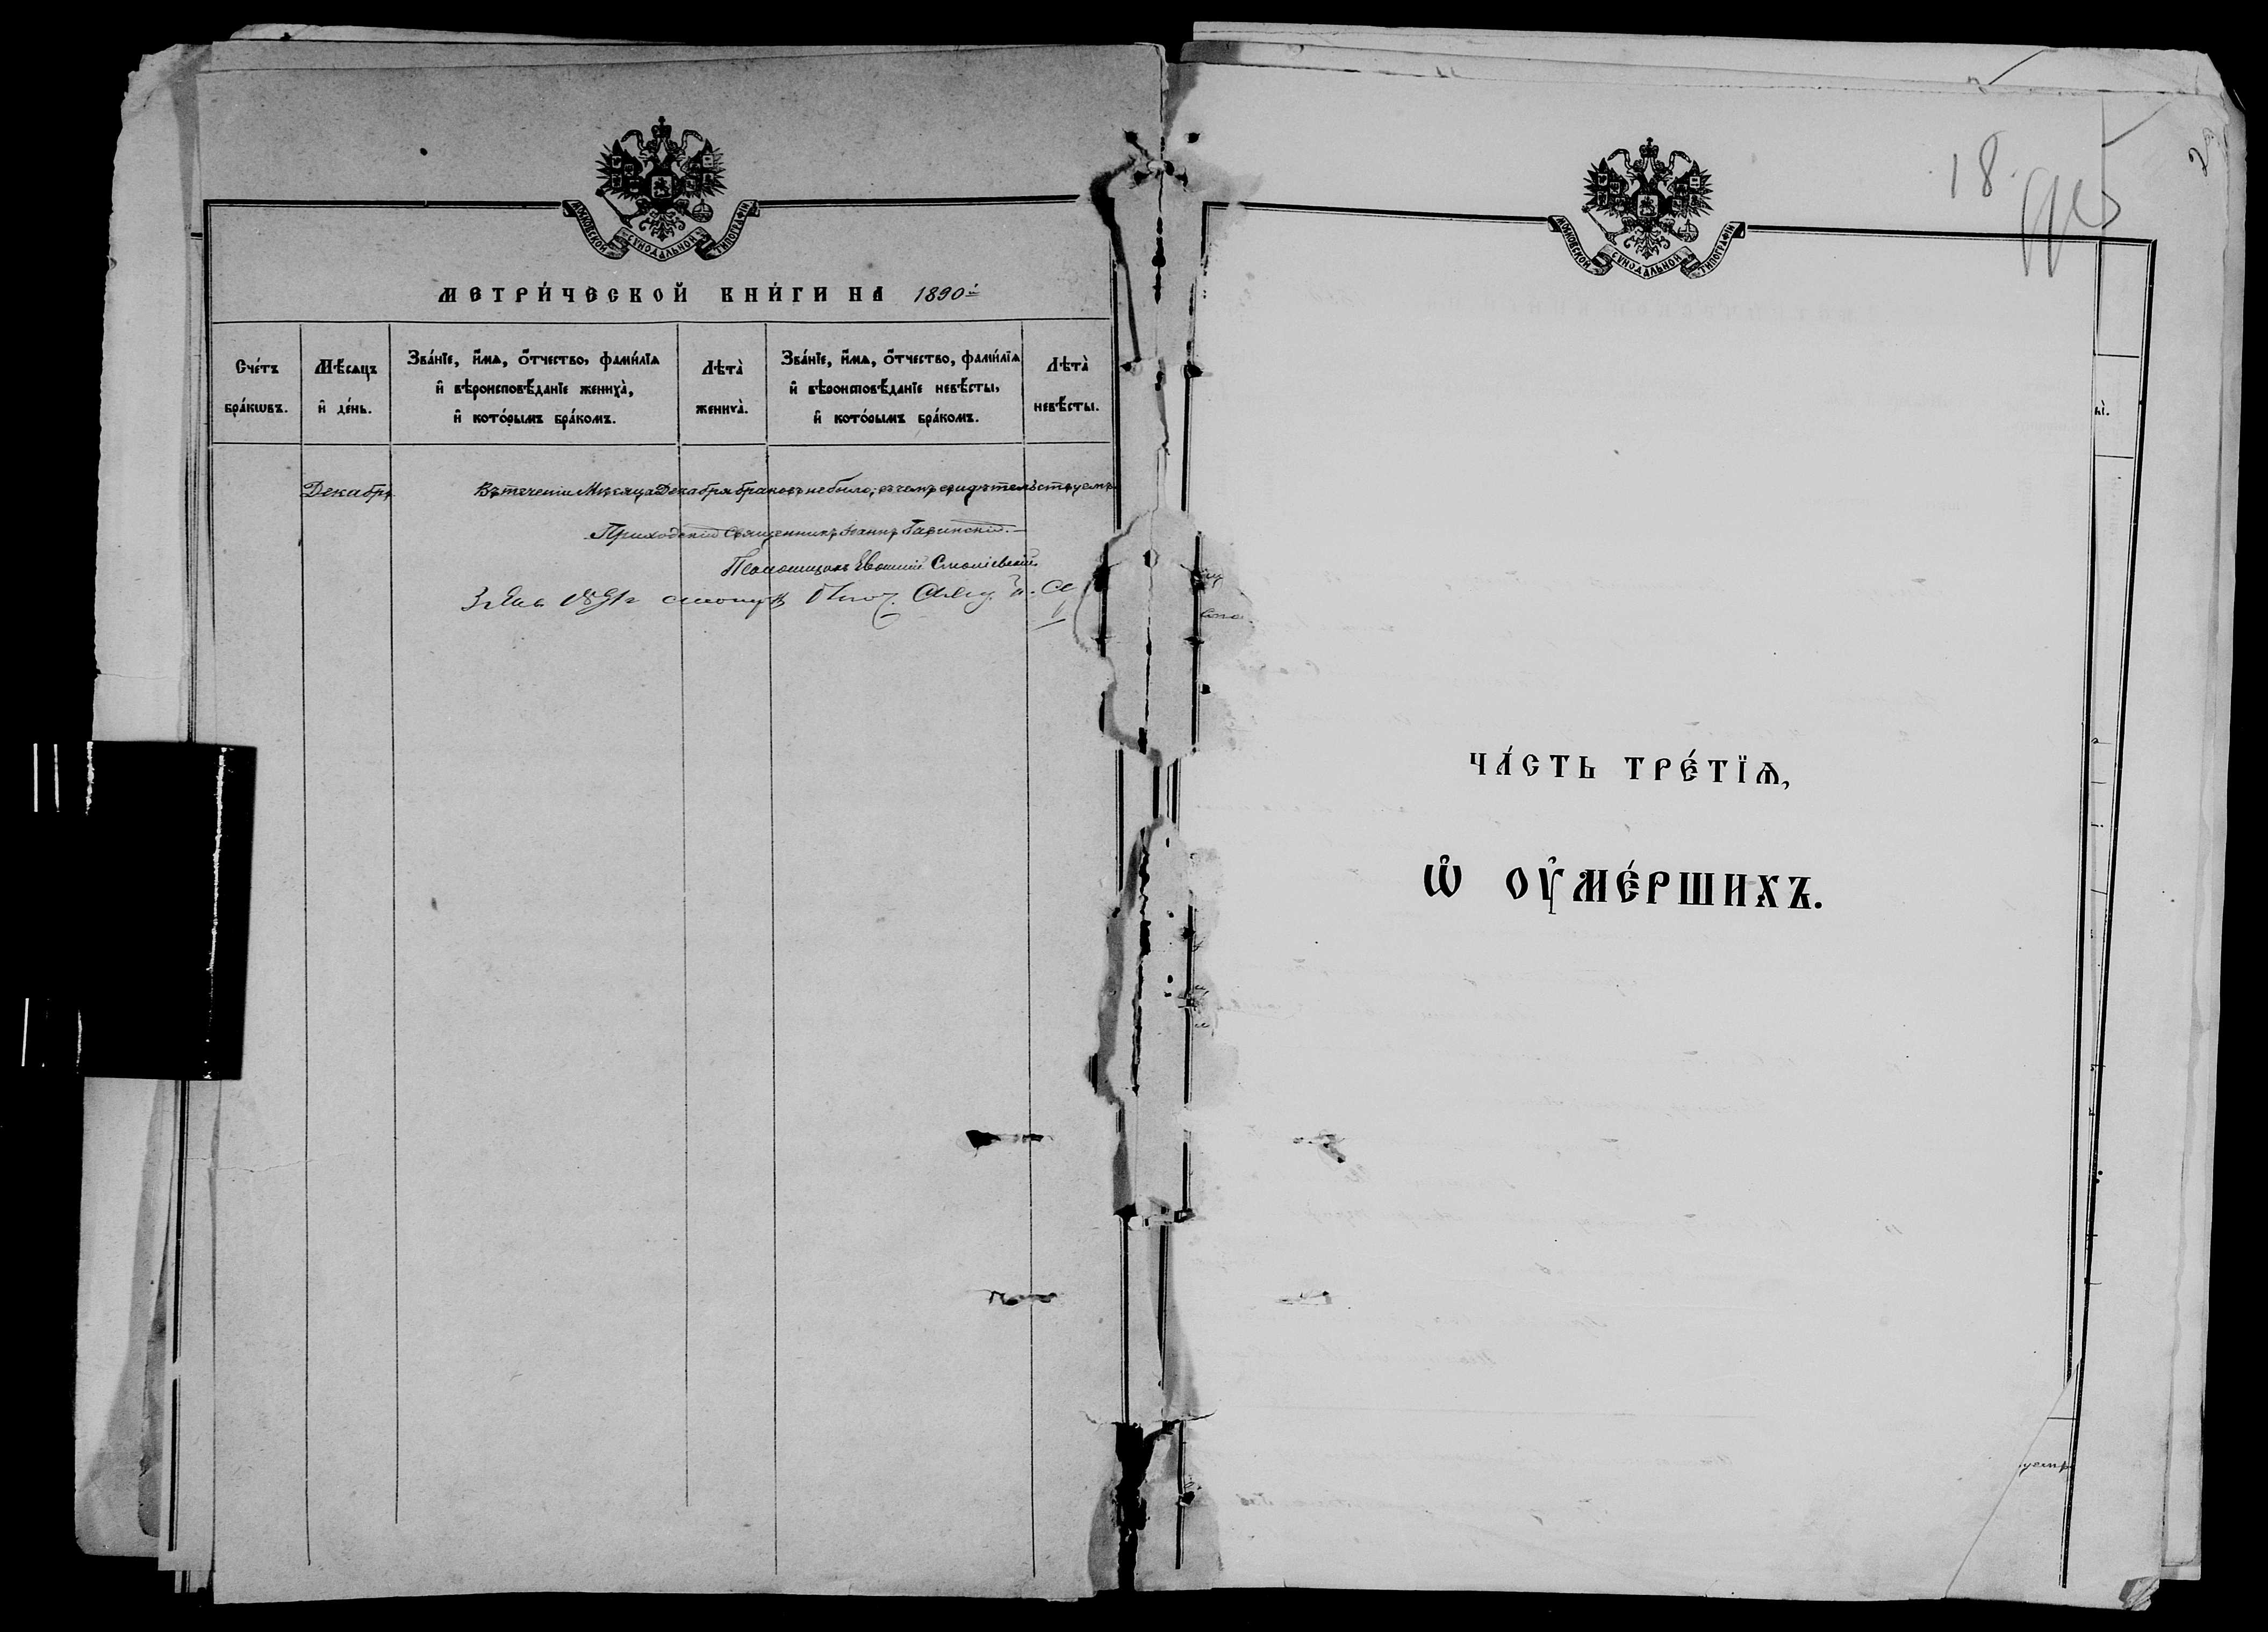 МОСКОВСКОЙ СУНОДАЛЬНОЙ ТИПОГРАФІИ
МЕТРИ́ЧЕСКОЙ КНИ́ГИ НА 1890 й
Сче́тъ бра́кѡвъ.
Мѣ́сяцъ и҆ де́нь.
Зва́нїе, и҆́мя, ѻ҆́тчество, фами́лїя и҆ вѣроисповѣ́данїе женихà, и҆ кото́рымъ бра́комъ.
Лѣтà женихà.
Зва́нїе, и҆́мя, ѻ҆́тчество, фами́лїя и҆ вѣроисповѣ́данїе невѣ́сты, и҆ кото́рымъ бра́комъ.
Лѣтà невѣ́сты.
Декабрь
Въ теченіи Мѣсяца Декабря браковъ не было; въ чемъ свидѣтельствуемъ
Приходскій Священникъ Іоаннъ
Псаломщикъ Евфимій
МОСКОВСКОЙ СУНОДАЛЬНОЙ ТИПОГРАФІИ
18.
ЧА́СТЬ ТРЕ́ТЇѦ,
Ѡ҆ ОУ҆МЕ́РШИХЪ.